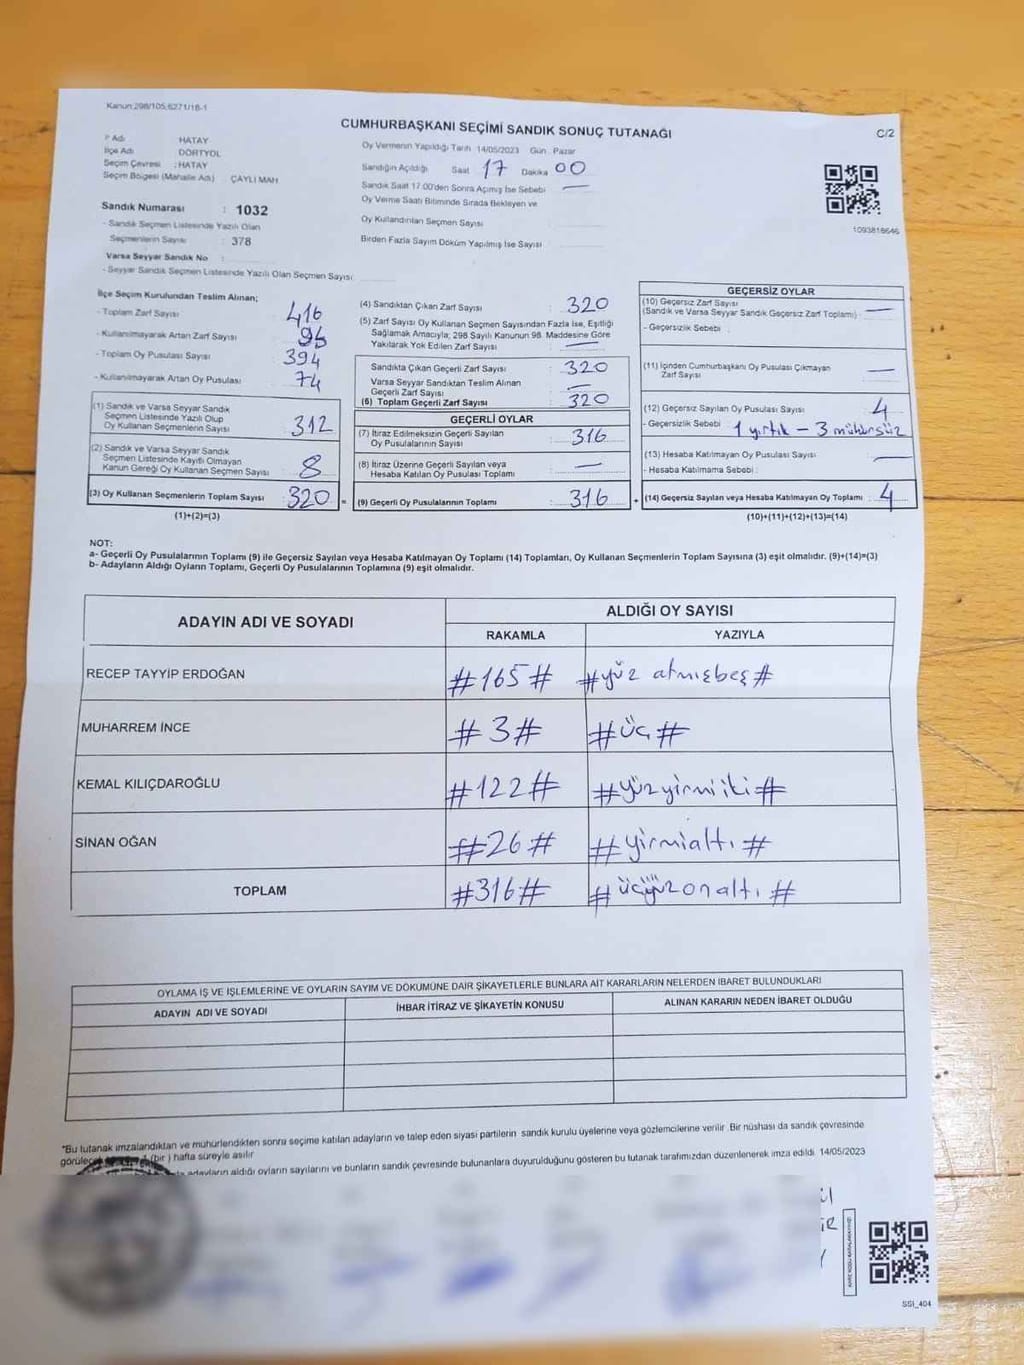 Kanun:298/105;6271/18-1
CUMHURBAŞKANI SEÇİMİ SANDIK SONUÇ TUTANAĞI
C/2
İl Adı HATAY
İlçe Adı DÖRTYOL
Seçim Çevresi : HATAY
Seçim Bölgesi (Mahalle Adı) ÇAYLI MAH
Sandık Numarası : 1032
- Sandık Seçmen Listesinde Yazılı Olan
Seçmenlerin Sayısı : 378
Varsa Seyyar Sandık No :
- Seyyar Sandık Seçmen Listesinde Yazılı Olan Seçmen Sayısı
Oy Vermenin Yapıldığı Tarih 14/05/2023 Gün Pazar
Sandığın Açıldığı Saat 17 Dakika 00
Sandık Saat 17.00'den Sonra Açımış İse Sebebi —
Oy Verme Saati Bitiminde Sırada Bekleyen ve
Oy Kullandırılan Seçmen Sayısı
Birden Fazla Sayım Döküm Yapılmış İse Sayısı
1093816646
İlçe Seçim Kurulundan Teslim Alınan;
- Toplam Zarf Sayısı 416
- Kullanılmayarak Artan Zarf Sayısı 96
- Toplam Oy Pusulası Sayısı 394
- Kullanılmayarak Artan Oy Pusulası 74
(1) Sandık ve Varsa Seyyar Sandık
Seçmen Listesinde Yazılı Olup
Oy Kullanan Seçmenlerin Sayısı 312
(2) Sandık ve Varsa Seyyar Sandık
Seçmen Listesinde Kayıtlı Olmayan
Kanun Gereği Oy Kullanan Seçmen Sayısı 8
(3) Oy Kullanan Seçmenlerin Toplam Sayısı 320 =
(1)+(2)=(3)
(4) Sandıktan Çıkan Zarf Sayısı : 320
(5) Zarf Sayısı Oy Kullanan Seçmen Sayısından Fazla İse, Eşitliği
Sağlamak Amacıyla; 298 Sayılı Kanunun 98. Maddesine Göre
Yakılarak Yok Edilen Zarf Sayısı : —
Sandıkta Çıkan Geçerli Zarf Sayısı : 320
Varsa Seyyar Sandıktan Teslim Alınan
Geçerli Zarf Sayısı : —
(6) Toplam Geçerli Zarf Sayısı : 320
GEÇERLİ OYLAR
(7) İtiraz Edilmeksizin Geçerli Sayılan
Oy Pusulalarının Sayısı : 316
(8) İtiraz Üzerine Geçerli Sayılan veya
Hesaba Katılan Oy Pusulası Toplamı : —
(9) Geçerli Oy Pusulalarının Toplamı : 316 +
GEÇERSİZ OYLAR
(10) Geçersiz Zarf Sayısı
(Sandık ve Varsa Seyyar Sandık Geçersiz Zarf Toplamı) : —
- Geçersizlik Sebebi :
(11) İçinden Cumhurbaşkanı Oy Pusulası Çıkmayan
Zarf Sayısı : —
(12) Geçersiz Sayılan Oy Pusulası Sayısı : 4
- Geçersizlik Sebebi : 1 yırtık - 3 mühürsüz
(13) Hesaba Katılmayan Oy Pusulası Sayısı : —
- Hesaba Katılmama Sebebi :
(14) Geçersiz Sayılan veya Hesaba Katılmayan Oy Toplamı : 4
(10)+(11)+(12)+(13)=(14)
NOT:
a- Geçerli Oy Pusulalarının Toplamı (9) ile Geçersiz Sayılan veya Hesaba Katılmayan Oy Toplamı (14) Toplamları, Oy Kullanan Seçmenlerin Toplam Sayısına (3) eşit olmalıdır. (9)+(14)=(3)
b- Adayların Aldığı Oyların Toplamı, Geçerli Oy Pusulalarının Toplamına (9) eşit olmalıdır.
ADAYIN ADI VE SOYADI ALDIĞI OY SAYISI
RAKAMLA YAZIYLA
RECEP TAYYİP ERDOĞAN #165# #yüz atmışbeş#
MUHARREM İNCE #3# #üç#
KEMAL KILIÇDAROĞLU #122# #yüzyirmiiki#
SİNAN OĞAN #26# #yirmialtı#
TOPLAM #316# #üçyüzonaltı#
OYLAMA İŞ VE İŞLEMLERİNE VE OYLARIN SAYIM VE DÖKÜMÜNE DAİR ŞİKAYETLERLE BUNLARA AİT KARARLARIN NELERDEN İBARET BULUNDUKLARI
ADAYIN ADI VE SOYADI İHBAR İTİRAZ VE ŞİKAYETİN KONUSU ALINAN KARARIN NEDEN İBARET OLDUĞU
*Bu tutanak imzalandıktan ve mühürlendikten sonra seçime katılan adayların ve talep eden siyasi partilerin sandık kurulu üyelerine veya gözlemcilerine verilir. Bir nüshası da sandık çevresinde
(bir ) hafta süreyle asılır
adayların aldığı oyların sayılarını ve bunların sandık çevresinde bulunanlara duyurulduğunu gösteren bu tutanak tarafımızdan düzenlenerek imza edildi. 14/05/2023
SSI_404